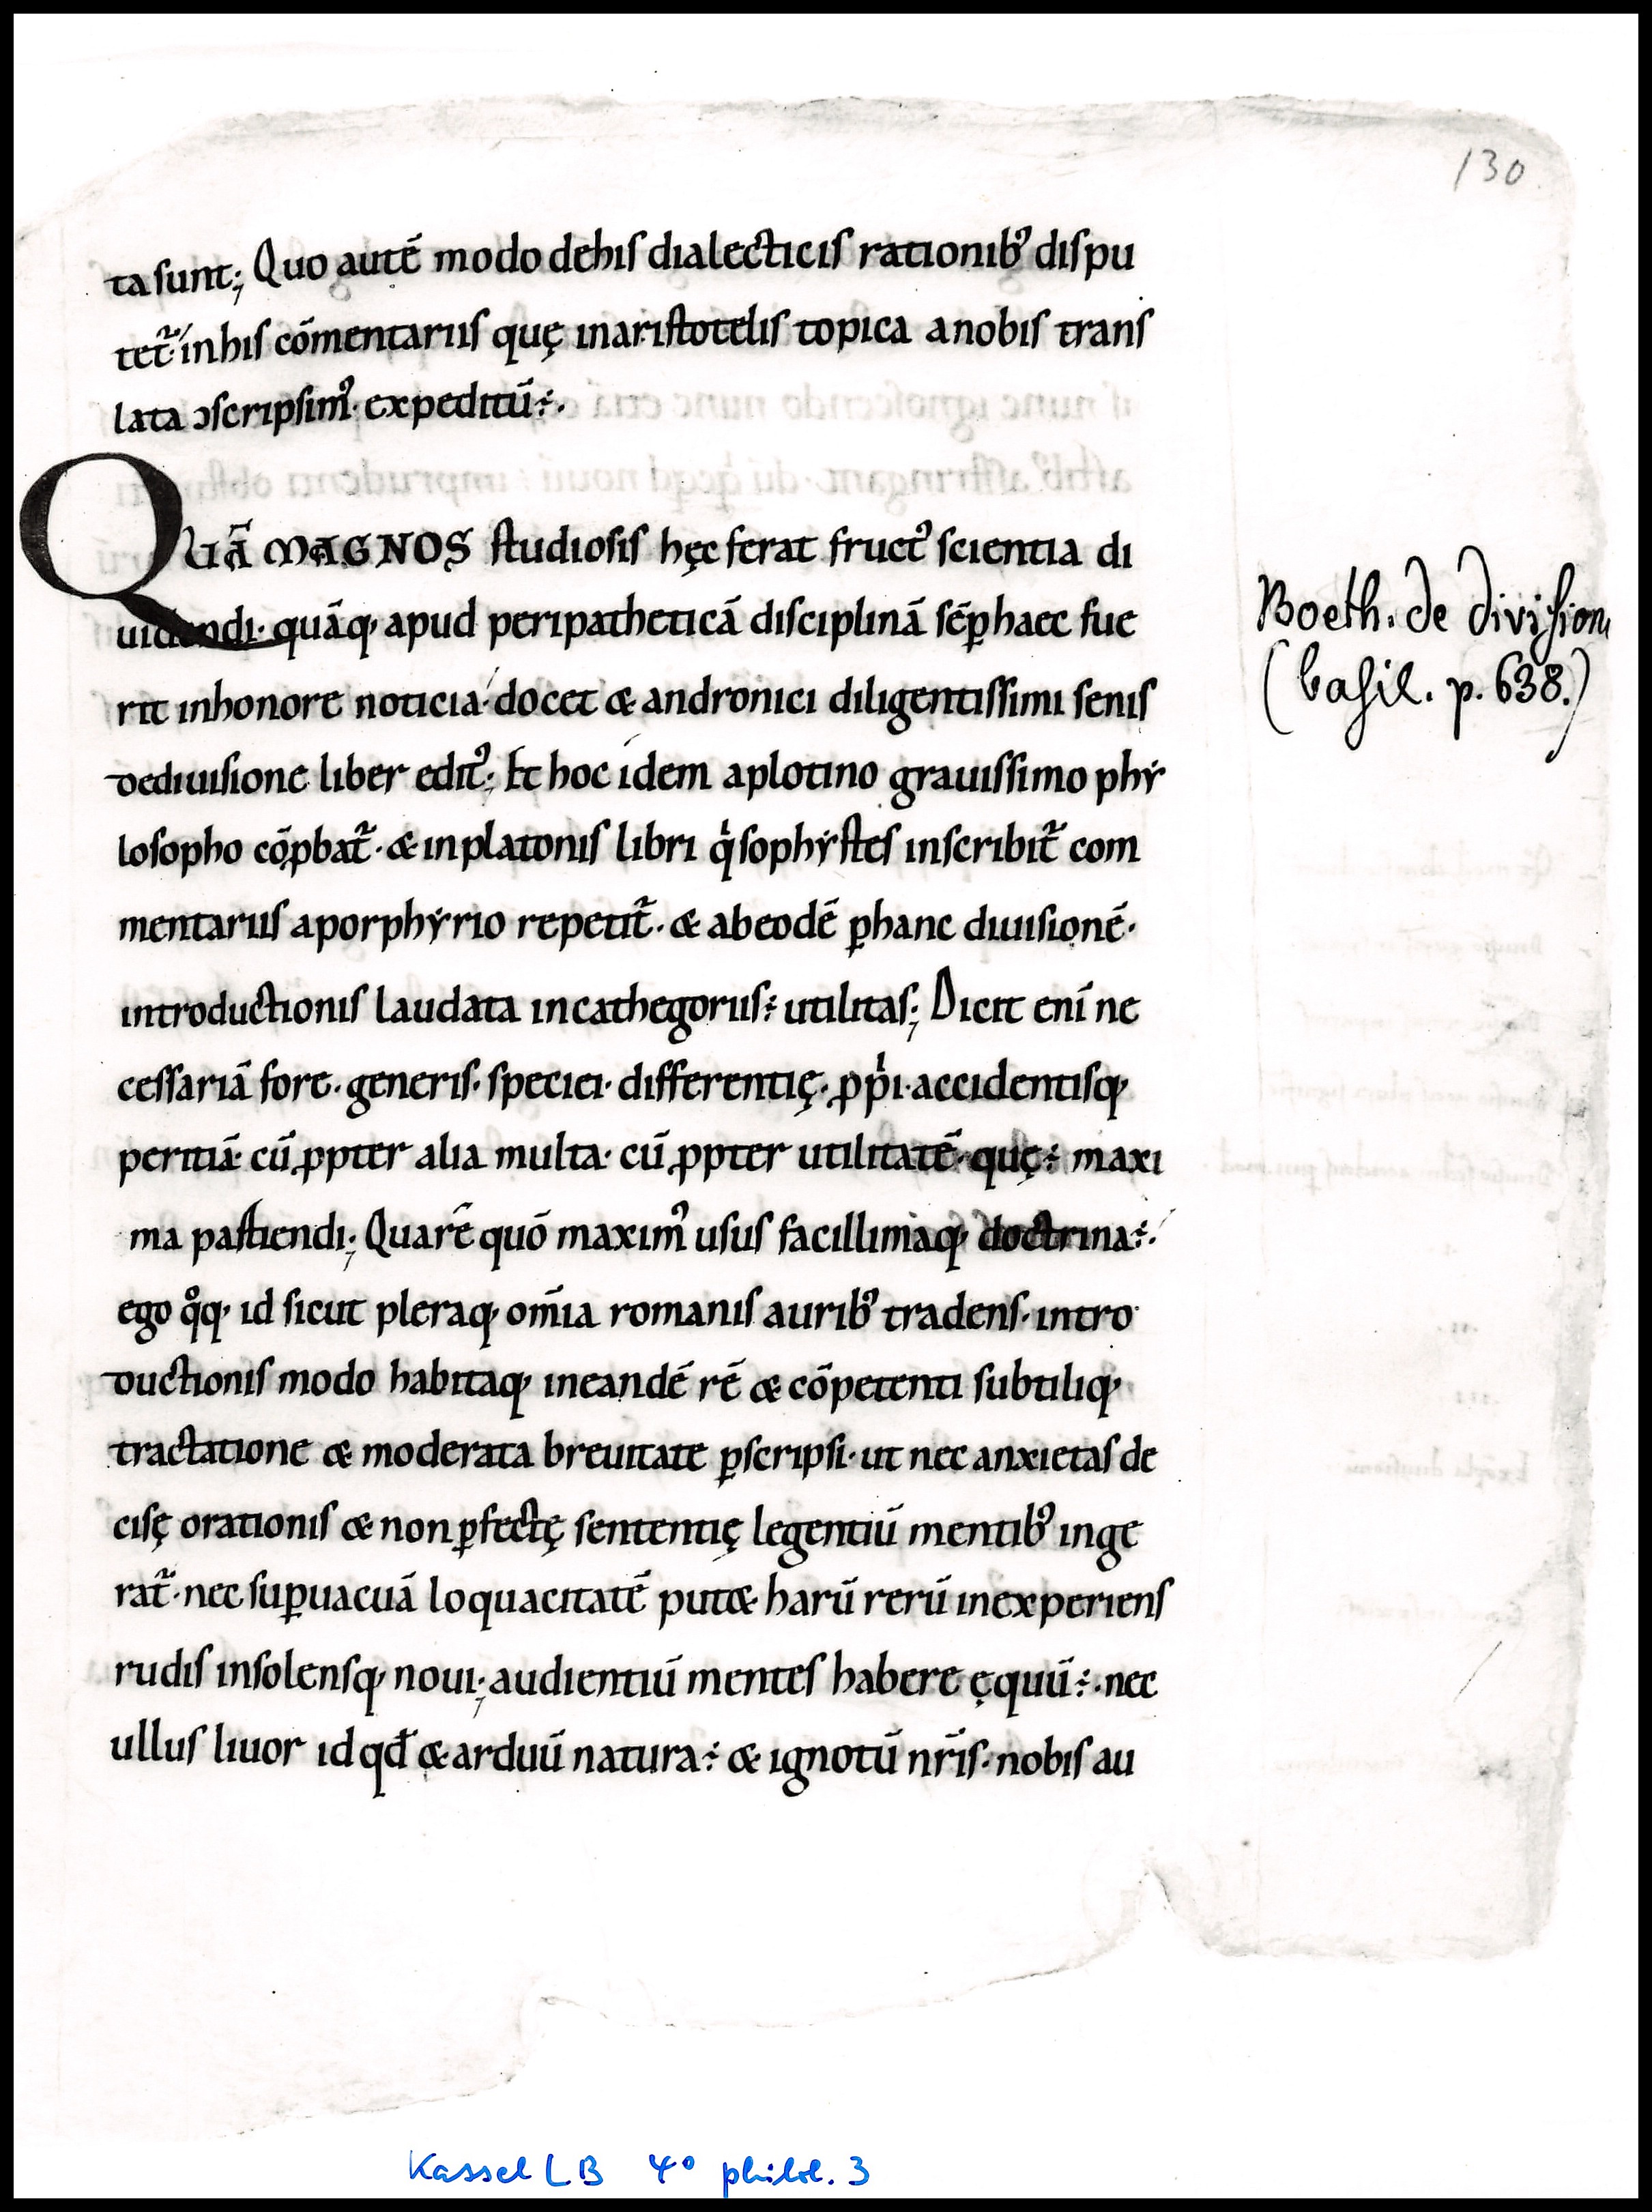 130
ta sunt; Quo autē modo dehis dialecticis rationibꝰ dispu
tet᷑ inhis cōmentariis quę inaristotelis topica anobis trans
lata ↄscripsimꝰ· expeditū ÷·
QUĀ MAGNOS studiosis hęc ferat fructꝰ scientia di
uidendi· quāq; apud peripatheticā disciplinā sēꝑ haec fue
rit inhonore noticia· docet & andronici diligentissimi senis
dediuisione liber editꝰ; Et hoc idem aplotino grauissimo phẏ
losopho cōꝓbat᷑· & inplatonis libri qͥ sophẏstes inscribit᷑ com
mentariis aporphẏrio repetit᷑· & abeodē ꝑhanc diuisionē·
introductionis laudata incathegoriis ÷ utilitas; Dicit enī ne
cessariā fore· generis· speciei· differentię· ꝓpͥi· accidentisq;
peritiā· cū ꝓpter alia multa· cū ꝓpter utilitatē· quę ÷ maxi
ma pastiendi; Quarē quō maximꝰ usus facillimaq; doctrina ÷·
ego qͦq; id sicut pleraq; om̄ia romanis auribꝰ tradens· intro
ductionis modo habitaq; ineandē rē & cōpetenti subtiliq;
tractatione & moderata breuitate ꝑscripsi· ut nec anxietas de
cisę orationis & non ꝑfectę sententię legentiū mentibꝰ inge
rat᷑· nec suꝑuacuā loquacitatē put&· harū rerū inexperiens
rudis insolensq; noui; audientiū mentes habere ęquū ÷· nec
ullus liuor id qd̄ & arduū natura ÷ & ignotū nr̄is· nobis au
Boeth. de division
(basil. p. 638.)
Kassel LB 4° philol. 3